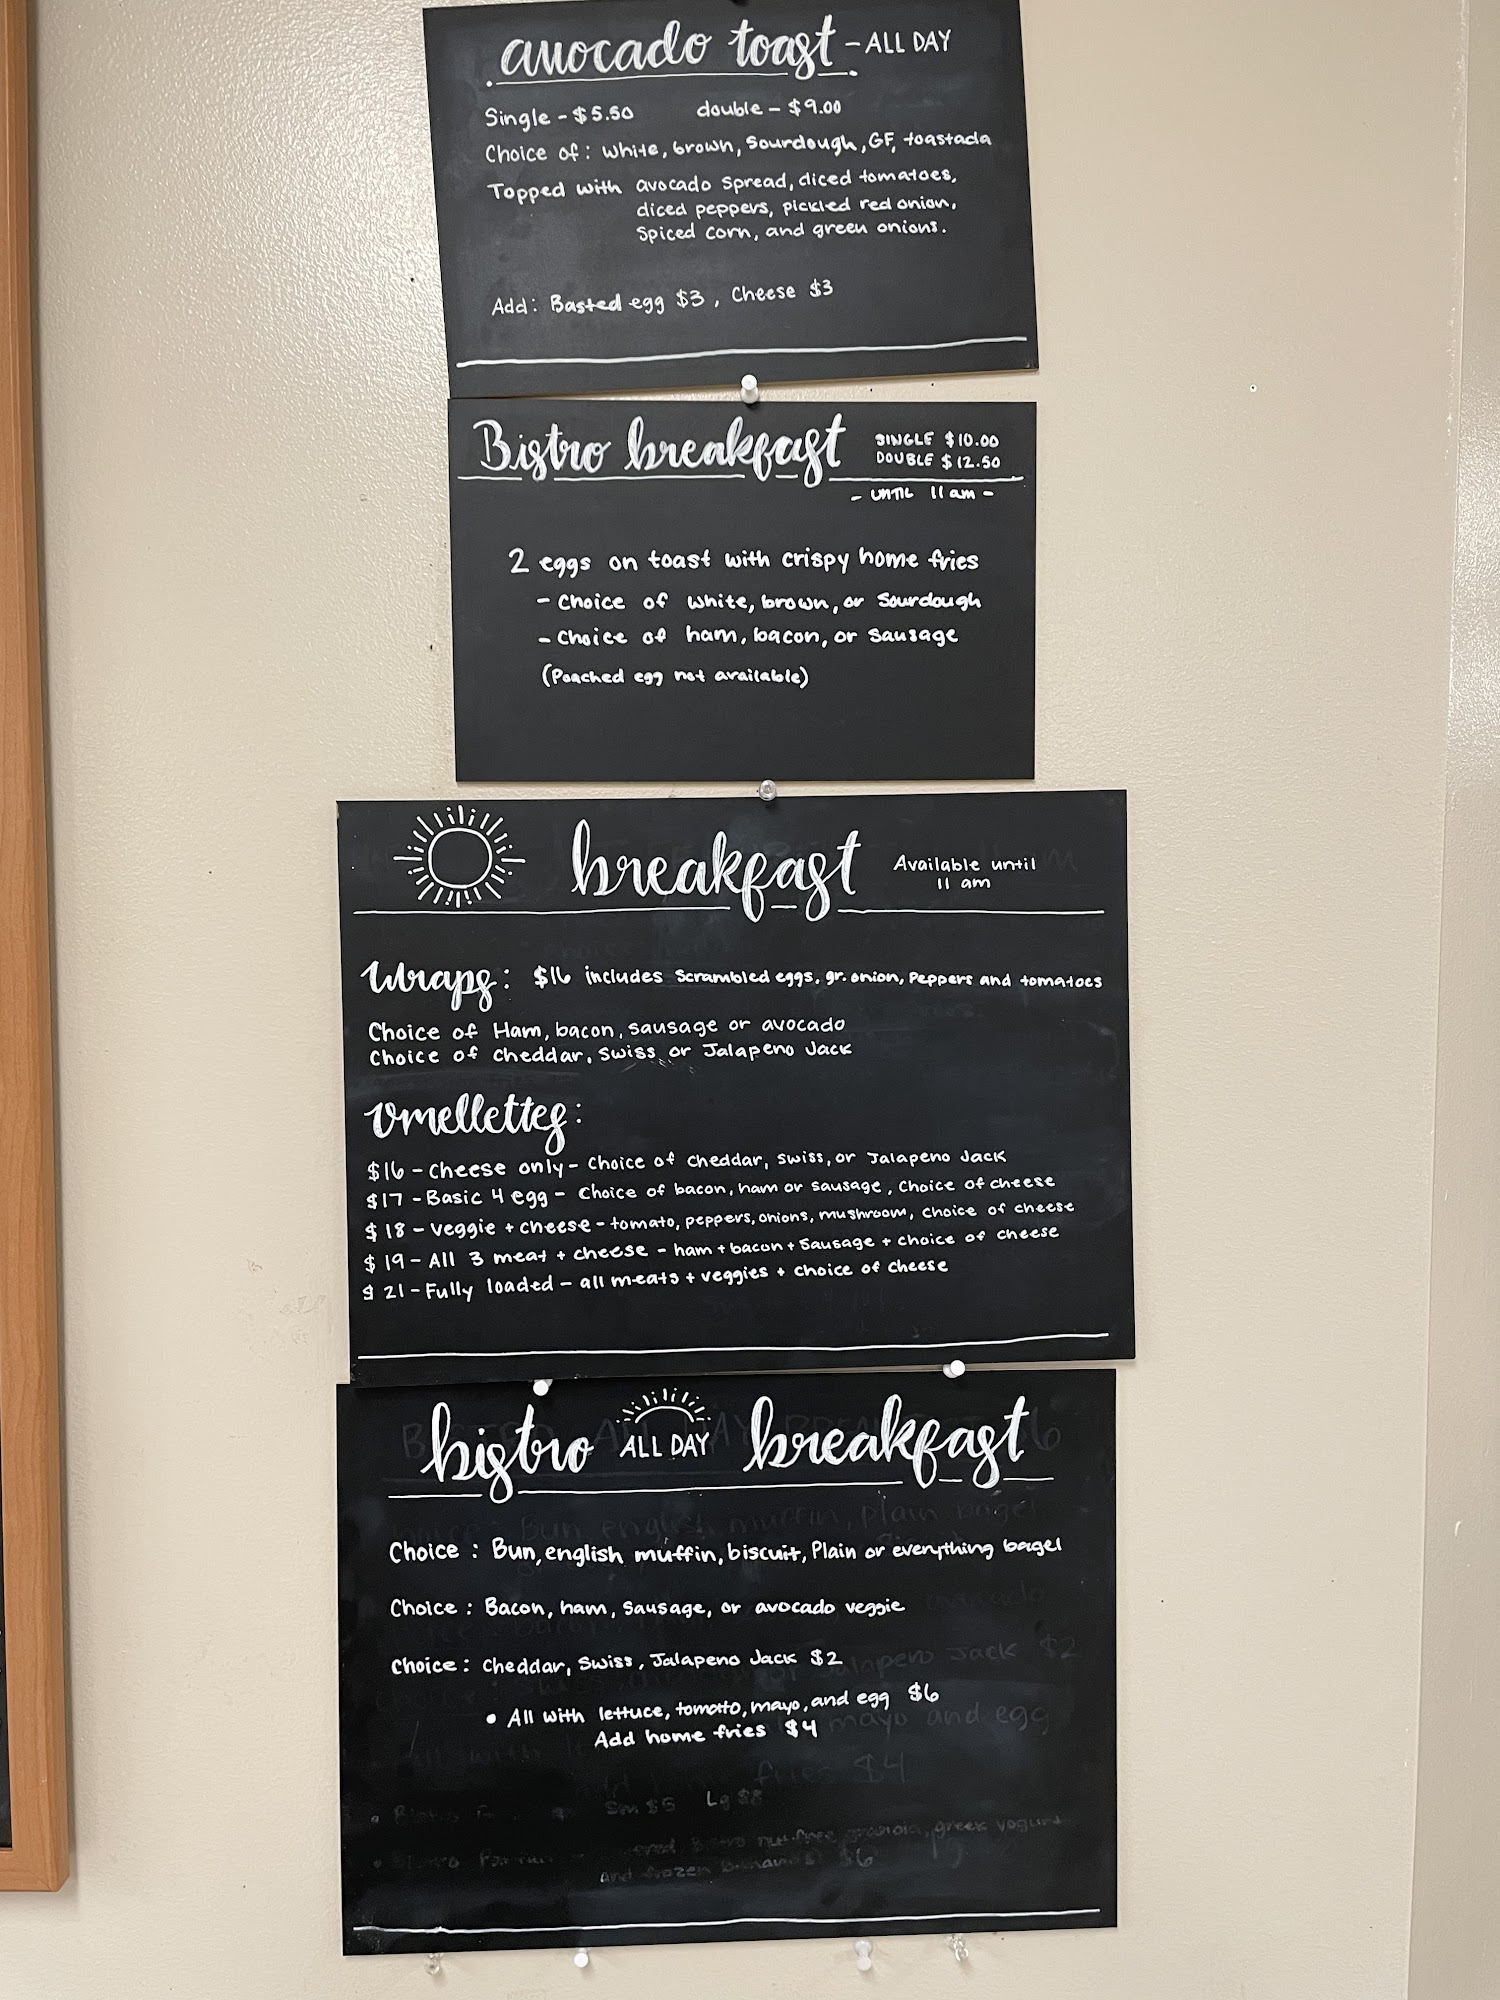 avocado toast - ALL DAY
Single - $5.50 double - $9.00
Choice of: white, brown, Sourdough, GF, toastada
Topped with avocado spread, diced tomatoes,
diced peppers, pickled red onion,
Spiced corn, and green onions.
Add: Basted egg $3, Cheese $3
Bistro breakfast
SINGLE $10.00
DOUBLE $12.50
- UNTIL 11am -
2 eggs on toast with crispy home fries
- Choice of white, brown, or Sourdough
- Choice of ham, bacon, or sausage
(Poached egg not available)
breakfast
Available until
11 am
Wraps: $16 includes Scrambled eggs, gr. onion, Peppers and tomatoes
Choice of Ham, bacon, sausage or avocado
Choice of cheddar, Swiss or Jalapeno Jack
Omellettes:
$16 - Cheese only - Choice of cheddar, Swiss, or Jalapeno Jack
$17 - Basic 4 egg - Choice of bacon, ham or sausage, Choice of cheese
$18 - Veggie + cheese - tomato, peppers, onions, mushroom, choice of cheese
$19 - All 3 meat + cheese - ham + bacon + Sausage + choice of cheese
$21 - Fully loaded - all meats + veggies + choice of cheese
bistro ALL DAY breakfast
Choice: Bun, english muffin, biscuit, Plain or everything bagel
Choice: Bacon, ham, sausage, or avocado veggie
Choice: Cheddar, Swiss, Jalapeno Jack $2
• All with lettuce, tomato, mayo, and egg $6
Add home fries $4
Sm $5 Lg $8
greek yogurt
and frozen $6